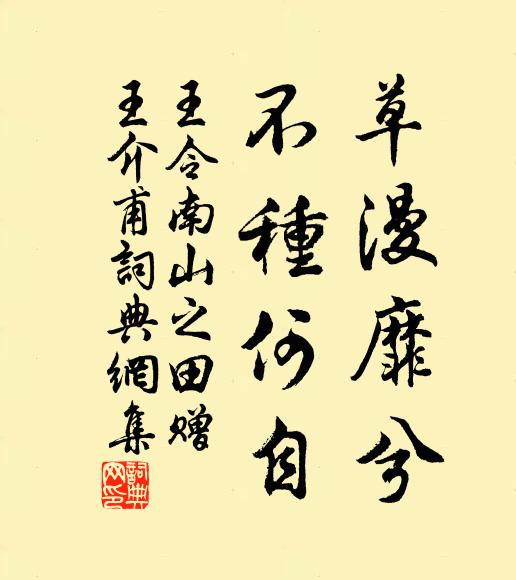 草漫靡兮
不種何自
王令南山之田赠
王介甫詞典網集
詞典
网印